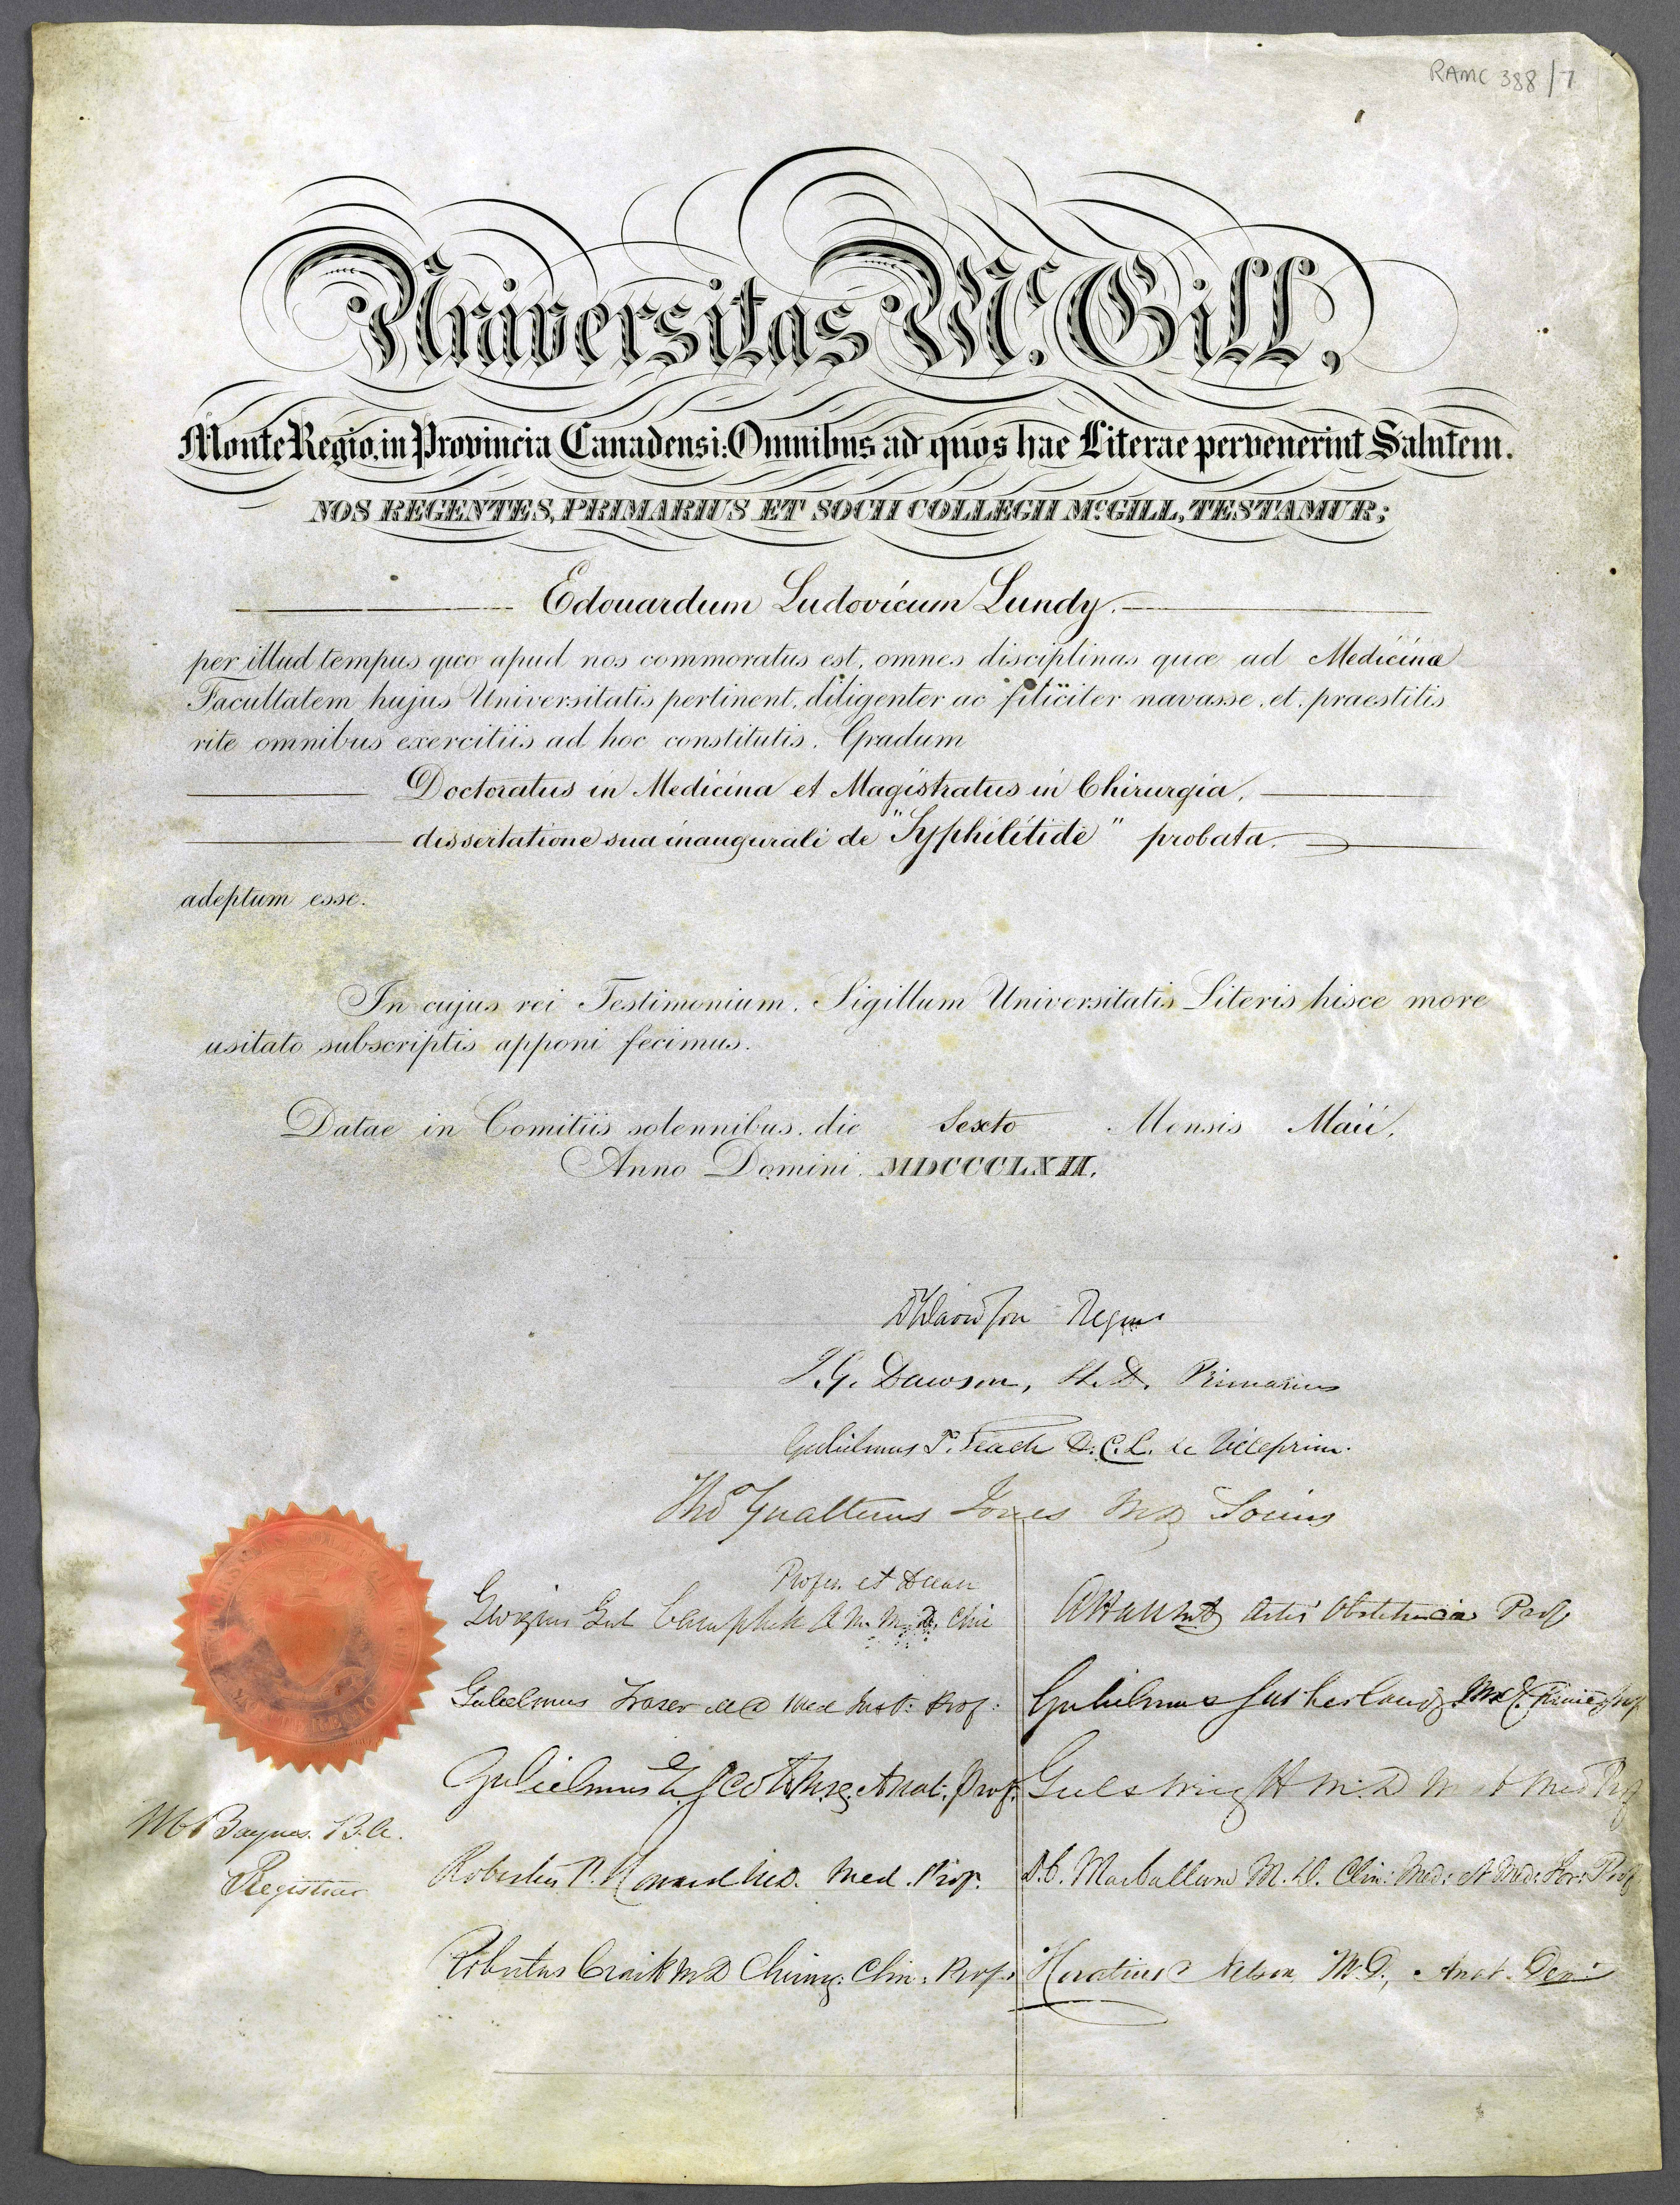 RAMC 388/7
Universitas McGill,
Monte Regio, in Provincia Canadensi: Omnibus ad quos hae Literae pervenerint Salutem.
NOS REGENTES, PRIMARIUS ET SOCII COLLEGII McGILL, TESTAMUR;
Edouardum Ludovicum Lundy.
per illud tempus quo apud nos commoratus est, omnes disciplinas quæ ad Medicinæ
Facultatem hujus Universitatis pertinent, diligenter ac filiciter navasse, et, praestitis
rite omnibus exercitiis ad hoc constitutis, Gradum
Doctoratus in Medicina et Magistratus in Chirurgia,
dissertatione sua inaugurali de "Syphilitide" probata.
adeptum esse.
In cujus rei Testimonium, Sigillum Universitatis Literis hisce more
usitato subscriptis apponi fecimus.
Datae in Comitiis solennibus, die Sexto Mensis Maii,
Anno Domini, MDCCCLXII.
Davidson
Dawson, Primarius
Gulielmus T. Leach D.C.L. Viceprim.
Thos Gualterus Jones MD Socius
Profes. et Decan
Georgius Gul Campbell A.M. M.D. Chir
A Hall MD Artis Obstetriciæ Prof
Gulielmus Fraser MD Med Inst: Prof:
Gulielmus Sutherland MD
Gulielmus E. Scott Anat: Prof.
Guls Wright M.D Med
W C Baynes. B.A.
Registrar
Robertus P. Howard M.D. Med. Prof.
D.C. MacCallum M.D. Clin: Med: et Med: For: Prof
Robertus Craik MD Chirurg: Clin: Prof.
Horatius Nelson M.D., Anat. Dem: